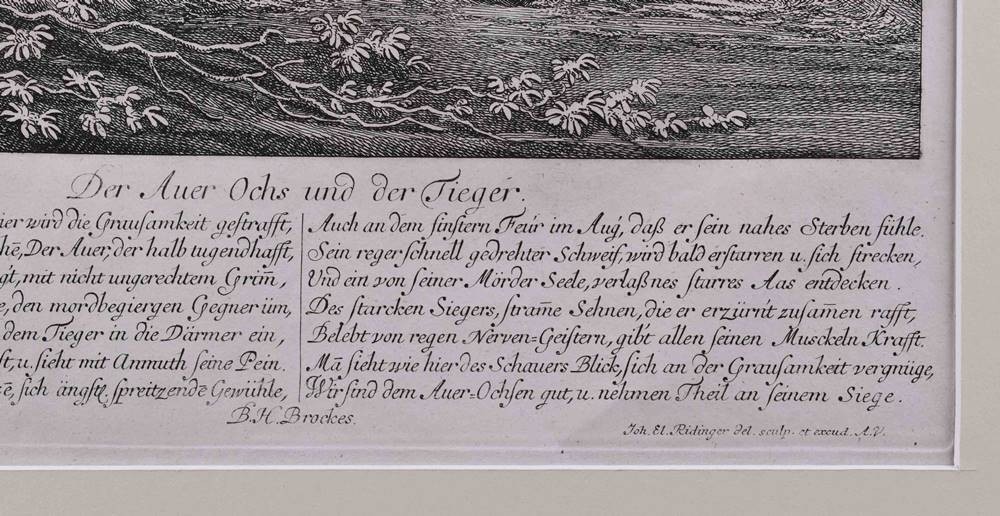 Der Auer Ochs und der Tieger.
wird die Grausamkeit gestrafft,
Der Auer, der halb tugendhafft,
mit nicht ungerechtem Grim̅,
den mordbegiergen Gegner üm,
dem Tieger in die Därmer ein,
u. sieht mit Anmuth seine Pein.
sich ängstl. spreitzende Gewühle,
Auch an dem finstern Feür im Aug', daß er sein nahes Sterben fühle.
Sein reger schnell gedrehter Schweif, wird bald erstarren u. sich strecken,
Und ein von seiner Mörder Seele, verlaßnes starres Aas entdecken.
Des starcken Siegers, stram̅e Sehnen, die er erzürn't zusam̅en rafft,
Belebt von regen Nerven=Geistern, gib't allen seinen Musckeln Krafft.
Ma̅ sieht wie hier des Schauers Blick, sich an der Grausamkeit vergnüge,
Wir sind dem Auer=Ochsen gut, u. nehmen Theil an seinem Siege.
B. H. Brockes.
Joh. El. Ridinger del. sculp. et excud. A.V.